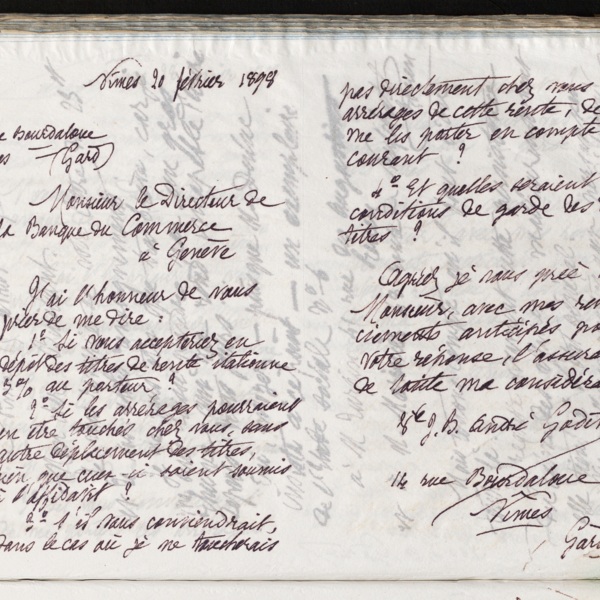 Nîmes 20 février 1898
Bourdaloue
(Gard)
Monsieur le Directeur de
la Banque du Commerce
à Genève
J'ai l'honneur de vous
prier de me dire :
1º Si vous accepteriez en
dépôt des titres de rente italienne
5% au porteur ?
2º Si les arrérages pourraient
en être touchés chez vous, sans
autre déplacement des titres,
bien que ceux-ci soient soumis
à l'affidavit ?
3º S'il vous conviendrait,
dans le cas où je ne toucherais
pas directement chez vous
arrérages de cette rente, de
me les porter en compte
courant ?
4º Et quelles seraient
conditions de garde des
titres ?
Agréez je vous prie
Monsieur, avec mes remer
ciements anticipés pour
votre réponse, l'assura
de toute ma considéra
Vve J. B. André Godin
14 rue Bourdaloue
Nîmes
Gard